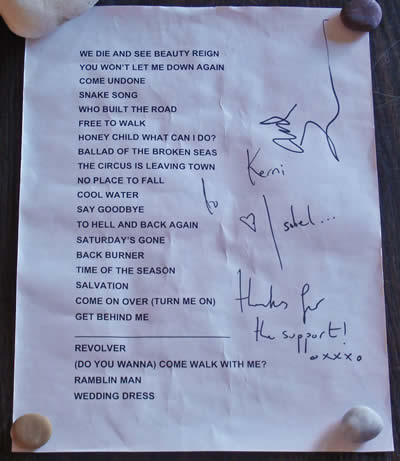 WE DIE AND SEE BEAUTY REIGN
YOU WON'T LET ME DOWN AGAIN
COME UNDONE
SNAKE SONG
WHO BUILT THE ROAD
FREE TO WALK
HONEY CHILD WHAT CAN I DO?
BALLAD OF THE BROKEN SEAS
THE CIRCUS IS LEAVING TOWN
NO PLACE TO FALL
COOL WATER
SAY GOODBYE
TO HELL AND BACK AGAIN
SATURDAY'S GONE
BACK BURNER
TIME OF THE SEASON
SALVATION
COME ON OVER (TURN ME ON)
GET BEHIND ME
REVOLVER
(DO YOU WANNA) COME WALK WITH ME?
RAMBLIN MAN
WEDDING DRESS
to Kerri
♡ Isobel...
thanks for
the support!
oxxxo